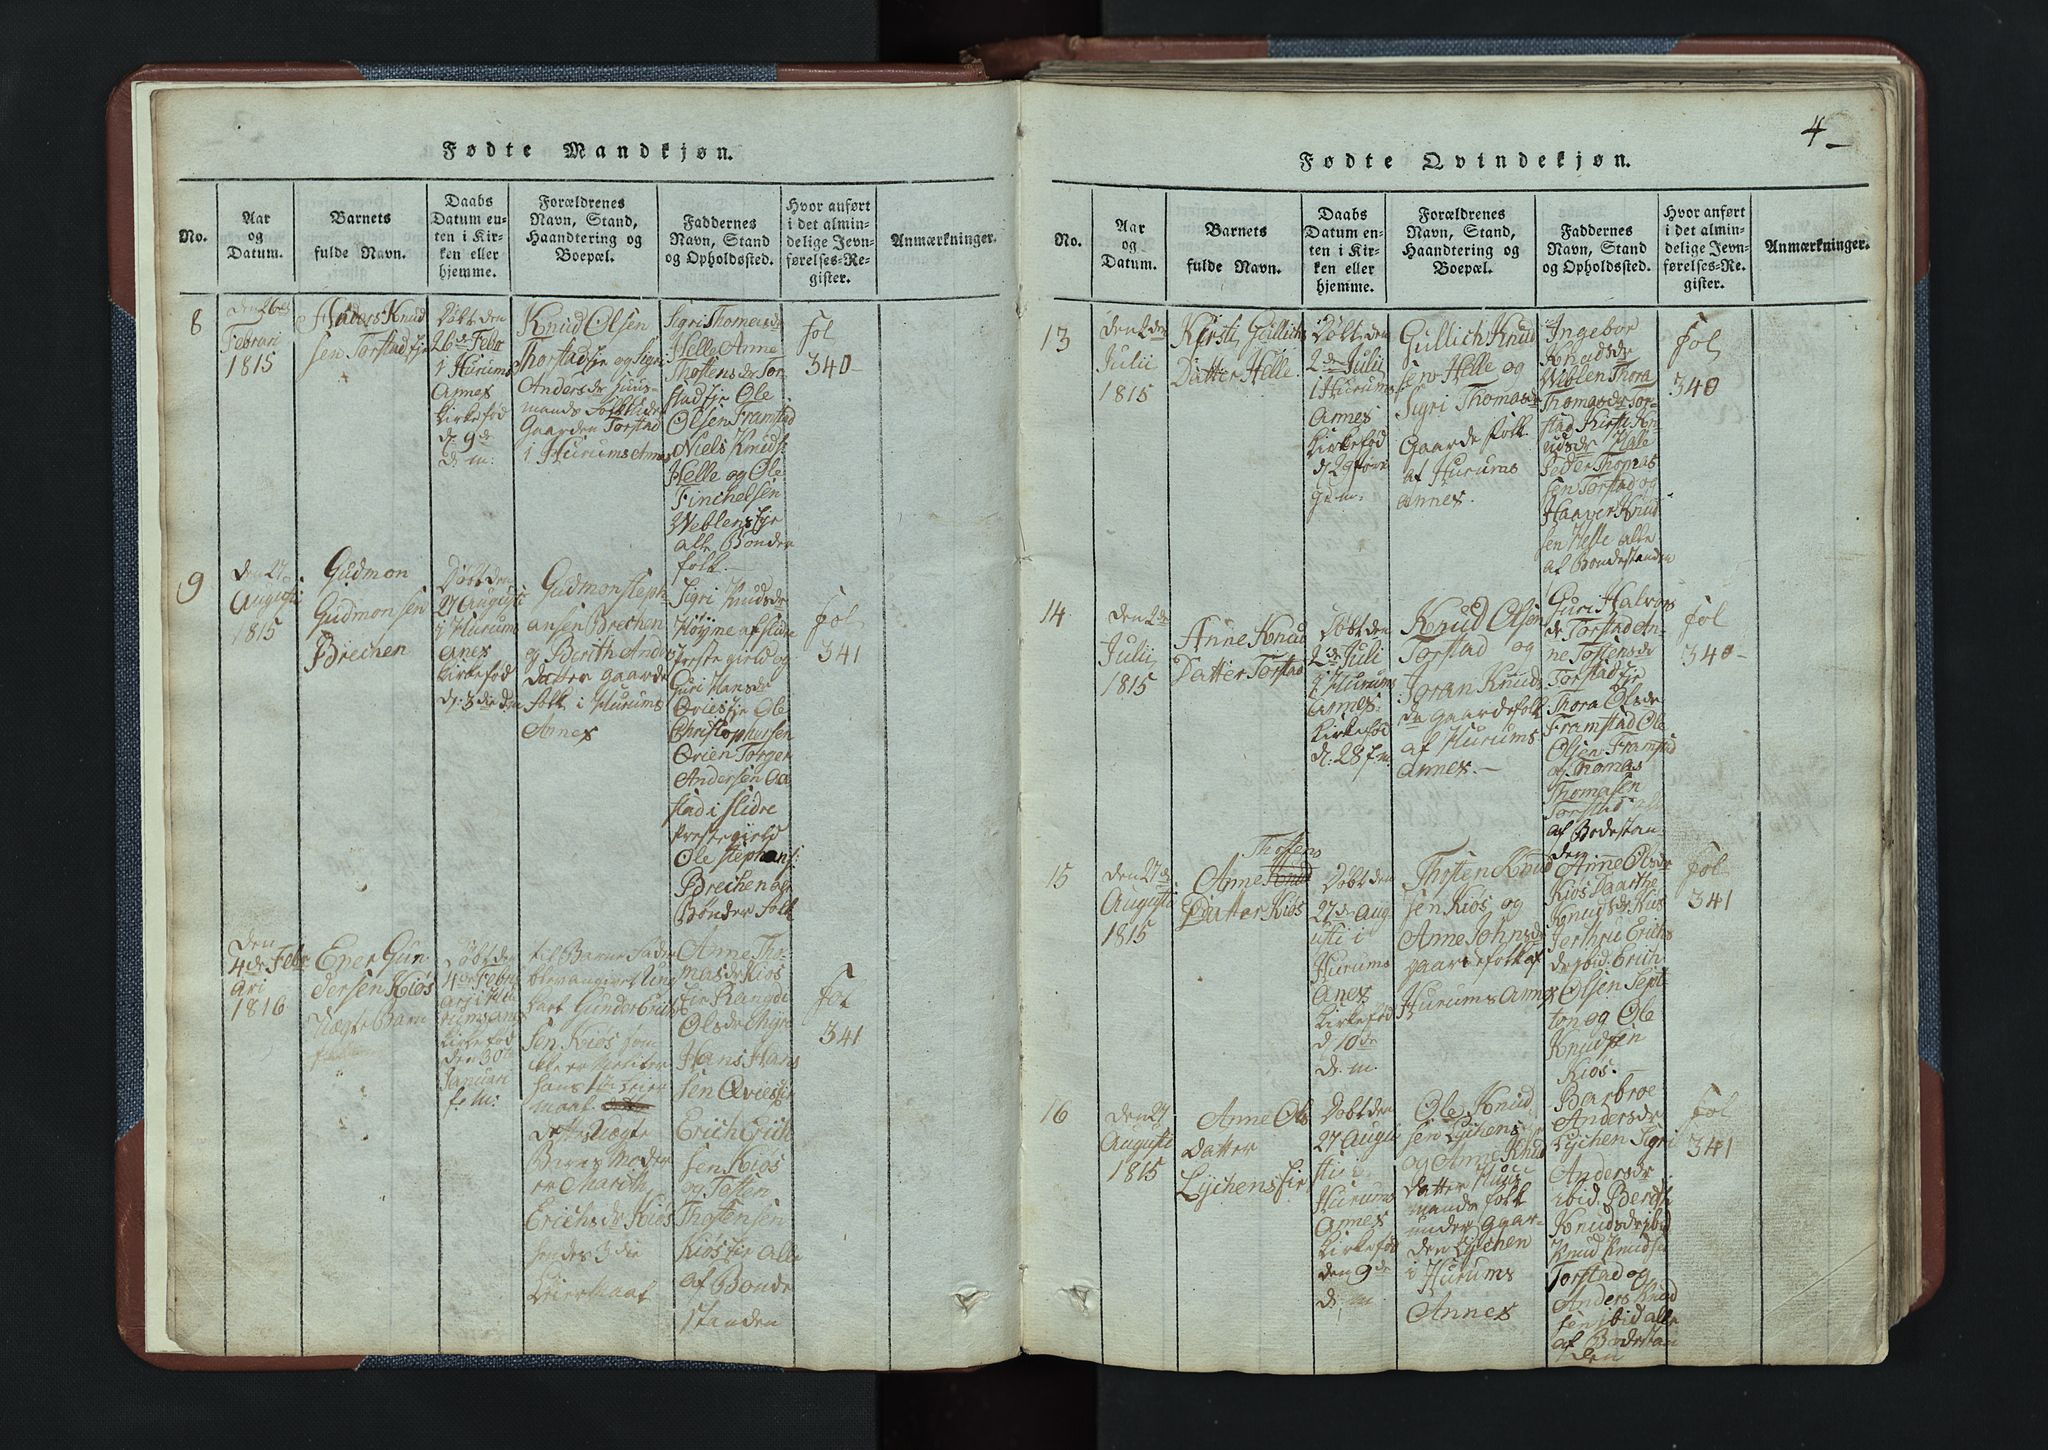 Fødte Mandkjøn.
No.
Aar
og
Datum.
Barnets
fulde Navn.
Daabs
Datum en-
ten i Kir-
ken eller
hjemme.
Forældrenes
Navn, Stand,
Haandtering og
Boepæl.
Faddernes
Navn, Stand
og Opholdssted.
Hvor anført
i det almin-
delige Jevn-
førelses-Re-
gister.
Anmærkninger.
8
Februari
1815
Anders Knud
sen Torstadeje
Døbt den
26 de Febr
i Hurums
Annex
Kirke fød
d. 9 de
d. m.
Knud Olsen
Thorstadeje og Sigri
Andersdr Huus-
mands folk under
Gaarden Torstad
i Hurums Annex
Sigri Thomasdr
Helle Anne
Thostensdr Tor
stadeje Ole
Olsen Framstad
Niels Knuds.
Helle og Ole
Finchelsen
Weblenseje
alle Bonder
folk
fol
340
9
den 27
Augusti
1815
Gudmon
Gudmonsen
Brechen
Døbt den
27 Augusti
i Hurums
Anex
Kirke fød
d. 3 die
Gudmon Steph
ansen Brechen
og Berith Anders
Datter gaarde
folk i Hurums
Annex
Sigri Knudsdr
Høyne af Slidre
Prestegield og
Guri Hansdr
Qvieseje Ole
Christophersen
Qvien Torger
Andersen
stad i Slidre
Prestegield
Ole Stephans:
Brechen alle
Bønder folk
fol
341
den
4 de Febr
ari
1816
Gun
dersen Kiøs
Uægte Barn
Døbt den
4 de Febru
ari i Hu
rums Anex
Kirke fød
den 30 te
Januari
til Barne Fader
blev angivet Ung
karl Gunder Erich
sen Kiøs som
hans
detts Uægte
Barns Moder
er Marith
Erichsdr Kiøs
hendes 3 die
Leiermaal
Anne Tho
masdr Kiøs
eje Rangdi
Olsdr
Hans Hans
sen Qvieseje
Erich Erich
sen Kiøs
og Tosten
Thostensen
Kiøseje alle
af Bonde
Standen
fol
341
4
Fødte Qvindekjøn.
No.
Aar
og
Datum.
Barnets
fulde Navn.
Daabs
Datum en-
ten i Kir-
ken eller
hjemme.
Forældrenes
Navn, Stand,
Haandtering og
Boepæl.
Faddernes
Navn, Stand
og Opholdssted.
Hvor anført
i det almin-
delige Jevn-
førelses-Re-
gister.
Anmærkninger.
13
den 2 den
Julii
1815
Kirsti Gullichs
Datter Helle
Døbt den
2 de Julii
i Hurums
Annex
Kirke fød
d. 29
Gullich Knud
sen Helle og
Sigri Thomasdr
Gaarde folk
af Hurums
Annex.
Ingebor
Knudsdr
Weblen Thora
Thomasdr Tor-
stad Kirsti Kn
udsdr
Peder Thomas
sen Torstad og
Haaver Knud
sen Helle alle
af Bondestanden
fol
340
14
den 2 de
Julii
1815
Anne Knud
Datter Torstad
Døbt den
2 de Juli
i Hurums
Annex
Kirke fød
d. 28 f m.
Knud Olsen
Torstad og
Joran Knuds
dr Gaardefolk
af Hurums
Annex.
Guri Halvors
dr Torstad An-
ne Tostensdr
Torstadeje
Thora Olsdr
Framstad Ole
Olsen Framstad
og Thomas
Thomasen
Torstad alle
af Bodestan
den
fol
340
15
den 27 de
Augusti
1815
Thostens
Anne Knud
Datter Kiøs
Døbt den
27 de Aug
usti i
Hurums
Anex
Kirke fød
d 10 de
d. m.
Thosten Knud
sen Kiøs og
Anne Johnsdr
gaardefolk af
Hurums Annex
Anne Olsdr
Kiøs Marthe
Knudsdr Kiøs
Jerthru Erichs
dr ibid. Erich
Olsen Sept
ton og Ole
Knudsen
Kiøs.
fol
341
16
den 27
Augusti
1815
Anne Ols
datter
Lychenseje
Døbt den
27 Augu
sti i
Hurums
Annex
Kirke fød
den 9 de
d. m
Ole Knud
sen Lychenseje
og Anne Knud
datter Huus
mands folk
under Gaar-
den Lychen
i Hurums
Annex
Barbroe
Andersdr
Lychen Sigri
Andersdr
ibid. Berth
Knudsdr ibid
Knud Knudsen
Torstad og
Anders Knud
sen ibid alle
af Bodestan
den
fol
341